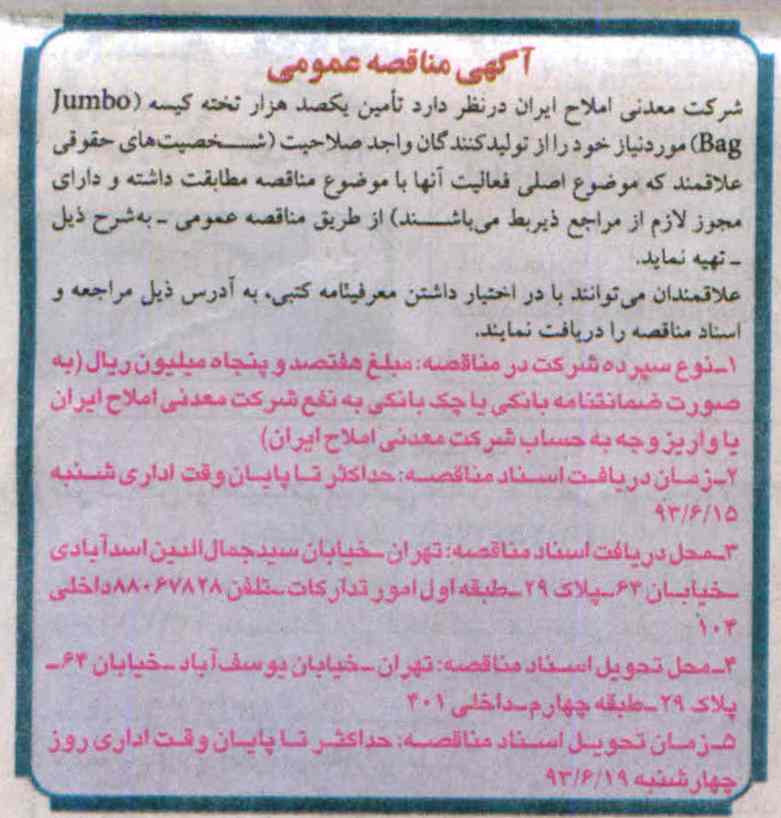 آگهی مناقصه عمومی
شرکت معدنی املاح ایران درنظر دارد تأمین یکصد هزار تخته کیسه (Jumbo
Bag) موردنیاز خود را از تولیدکنندگان واجد صلاحیت (شخصیت‌های حقوقی
علاقمند که موضوع اصلی فعالیت آنها با موضوع مناقصه مطابقت داشته و دارای
مجوز لازم از مراجع ذیربط می‌باشند) از طریق مناقصه عمومی ـ به‌شرح ذیل
ـ تهیه نماید.
علاقمندان می‌توانند با در اختیار داشتن معرفینامه کتبی، به آدرس ذیل مراجعه و
اسناد مناقصه را دریافت نمایند.
۱ـنوع سپرده شرکت در مناقصه: مبلغ هفتصد و پنجاه میلیون ریال (به
صورت ضمانتنامه بانکی یا چک بانکی به نفع شرکت معدنی املاح ایران
یا واریز وجه به حساب شرکت معدنی املاح ایران)
۲ـزمان دریافت اسناد مناقصه: حداکثر تا پایان وقت اداری شنبه
۹۳/۶/۱۵
۳ـمحل دریافت اسناد مناقصه: تهران ـخیابان سیدجمال‌الدین اسدآبادی
ـخیابان ۶۴ـپلاک ۲۹ـطبقه اول امور تدارکات ـتلفن ۸۸۰۶۷۸۲۸داخلی
۱۰۴
۴ـمحل تحویل اسناد مناقصه: تهران ـخیابان یوسف‌آباد ـخیابان ۶۴ـ
پلاک ۲۹ـطبقه چهارم ـداخلی ۴۰۱
۵ـزمان تحویل اسناد مناقصه: حداکثر تا پایان وقت اداری روز
چهارشنبه ۹۳/۶/۱۹